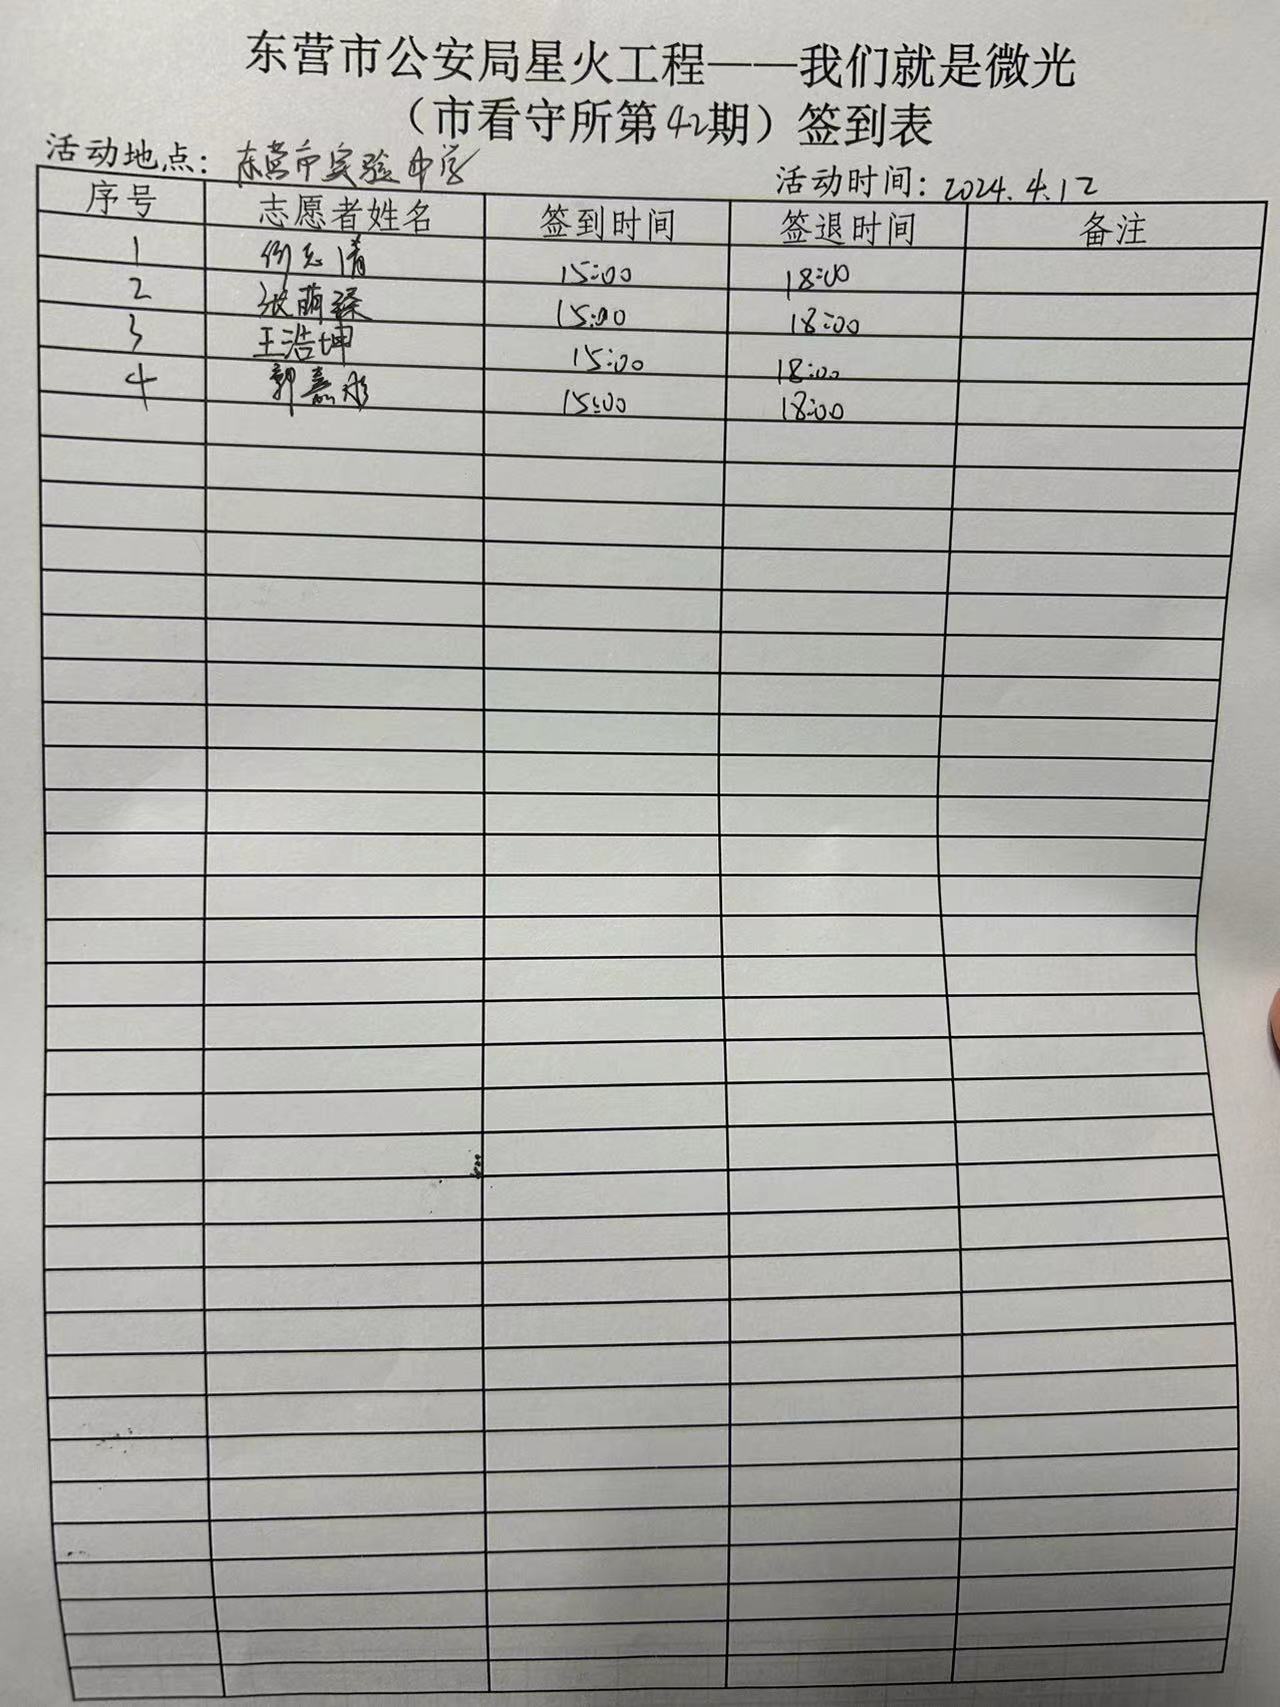 东营市公安局星火工程——我们就是微光
（市看守所第42期）签到表
活动地点：东营市实验中学 活动时间：2024.4.12
序号 志愿者姓名 签到时间 签退时间 备注
1 15:00 18:00
2 张萌 15:00 18:00
3 王浩坤 15:00 18:00
4 郭嘉 15:00 18:00